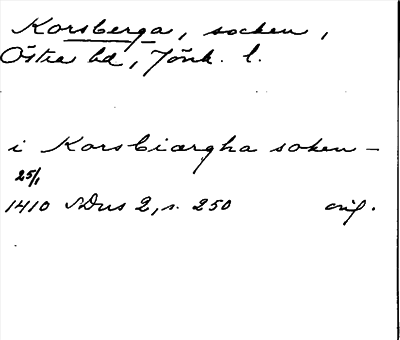 Korsberga, socken,
Östra hd, Jönk. l.
i Korsbiærgha soken –
25/1
1410 SDns 2, s. 250 orig.